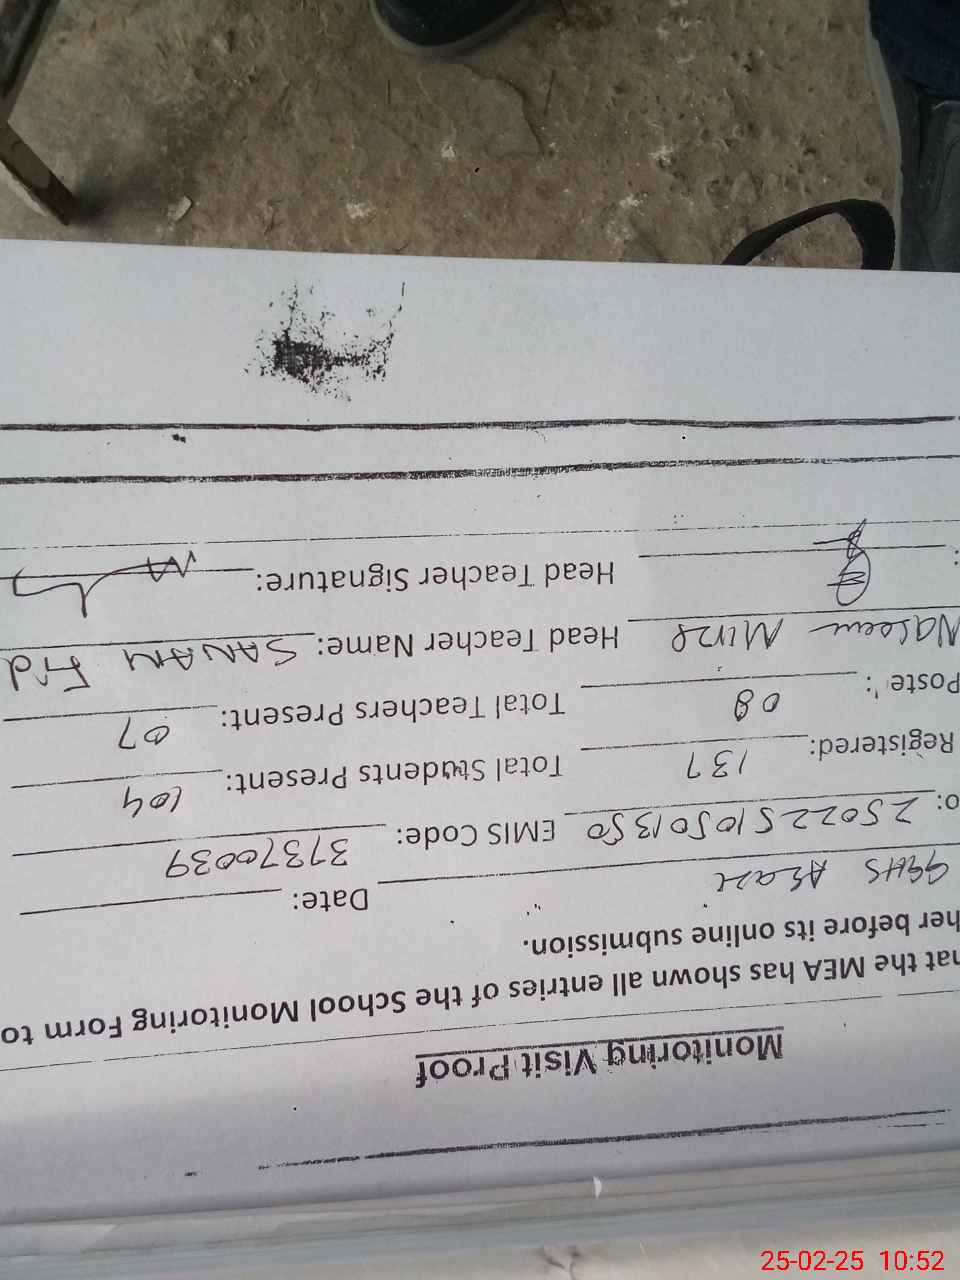 Monitoring Visit Proof
hat the MEA has shown all entries of the School Monitoring Form to
her before its online submission.
GGHS Date:
o: 25022510501350 EMIS Code: 37370039
Registered: 137 Total Students Present: 104
Poste : 08 Total Teachers Present: 07
Naseem Head Teacher Name:
: Head Teacher Signature:
25-02-25 10:52